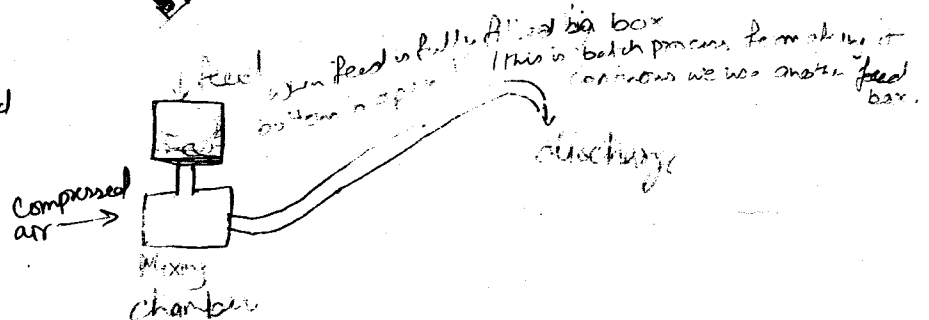 feed
when feed is fully filled in box
bottom is open
this is batch process for making it
continous we use another feed
box.
discharge
Compressed
air
Mixing
chamber